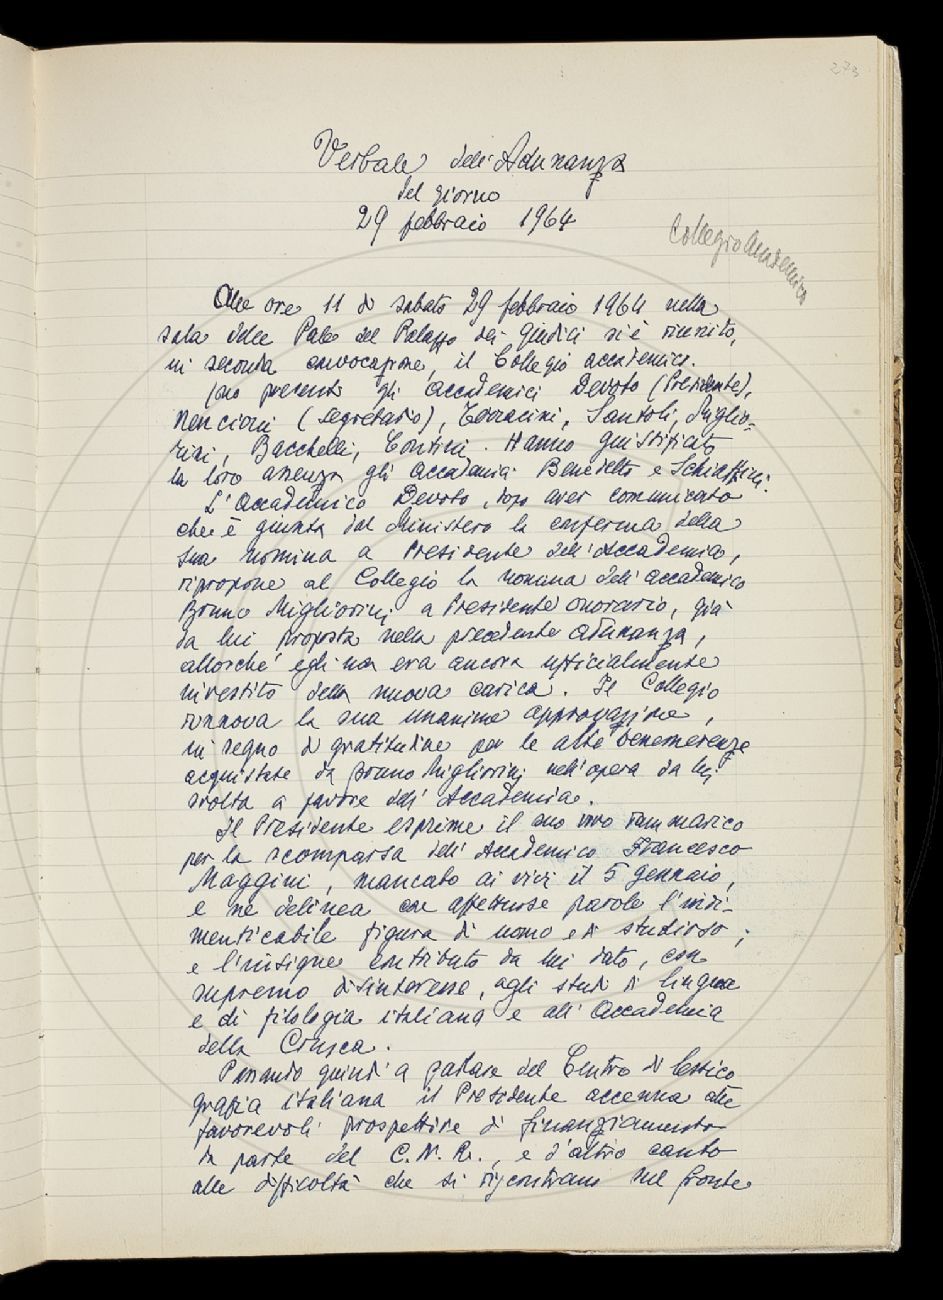 273
Verbale dell'Adunanza
del giorno
29 febbraio 1964
Collegio Accademico
Alle ore 11 di sabato 29 febbraio 1964 nella
sala delle Pale del Palazzo dei Giudici si è riunito,
in seconda convocazione, il Collegio accademico.
Sono presenti gli Accademici Devoto (Presidente),
Nencioni (Segretario), Terracini, Santoli, Miglio-
rini, Bacchelli, Contini. Hanno giustificato
la loro assenza gli Accademici Benedetto e Schiaffini.
L'Accademico Devoto, dopo aver comunicato
che è giunta dal Ministero la conferma della
sua nomina a Presidente dell'Accademia,
ripropone al Collegio la nomina dell'accademico
Bruno Migliorini a Presidente onorario, già
da lui proposta nella precedente adunanza,
allorché egli non era ancora ufficialmente
investito della nuova carica. Il Collegio
rinnova la sua unanime approvazione,
in segno di gratitudine per le alte benemerenze
acquistate da Bruno Migliorini nell'opera da lui
svolta a favore dell'Accademia.
Il Presidente esprime il suo vivo rammarico
per la scomparsa dell'Accademico Francesco
Maggini, mancato ai vivi il 5 gennaio,
e ne delinea con affettuose parole l'indi-
menticabile figura di uomo e di studioso;
e l'insigne contributo da lui dato, con
supremo disinteresse, agli studi di lingua
e di filologia italiana e all'Accademia
della Crusca.
Passando quindi a parlare del Centro di lessico
grafia italiana il Presidente accenna alle
favorevoli prospettive di finanziamento
da parte del C.N.R., e d'altro canto
alle difficoltà che si riscontrano sul fronte